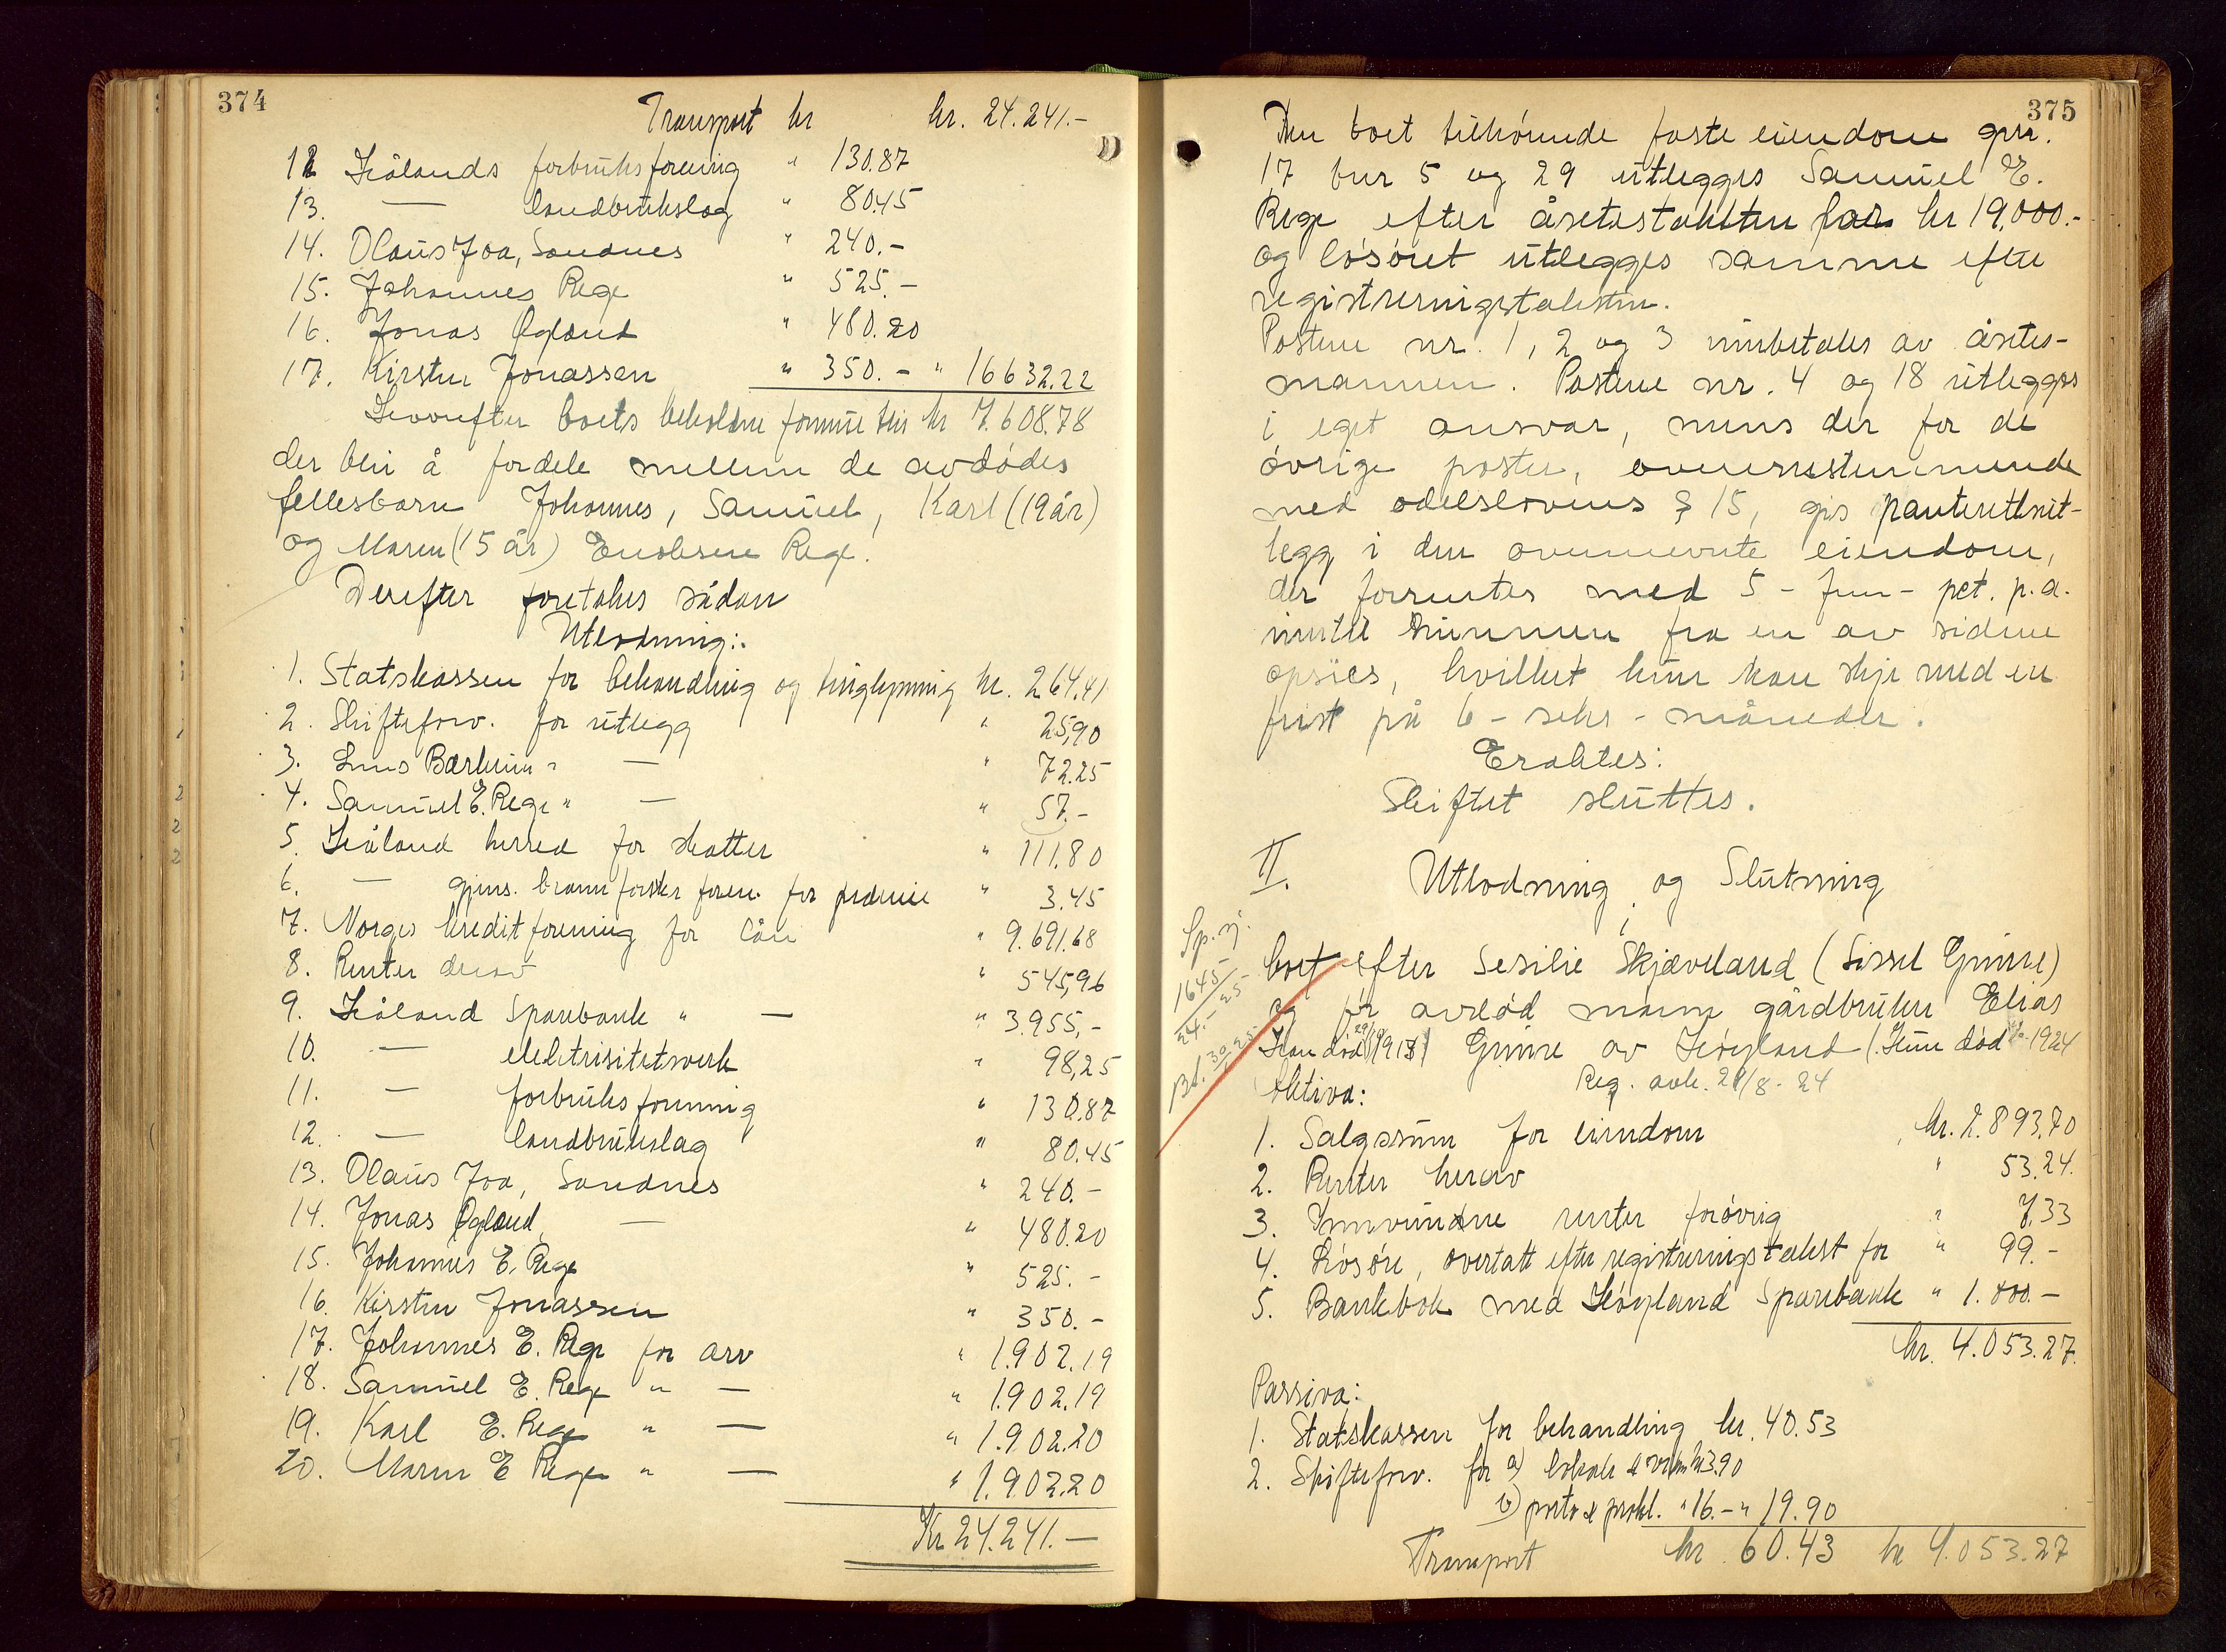 374
Transport kr kr. 24.241.-
12 Håland's forbruksforening " 130.87
13. — landbrukslag " 80.45
14. Olaus Joa, Sandnes " 240.-
15. Johannes Rege " 525.-
16. Jonas Øgland " 480.20
17. Kirsten Jonassen " 350.- " 16632.22
Hvorefter boets beholdne formue blir kr 7.608.78
der blir å fordele mellem de avdødes
fellesbarn Johannes, Samuel, Karl (19 år)
og Maren (15 år) Enoksen Rege.
Derefter foretokes sådan
Utlodning:
1. Statskassen for behandling og tinglysning kr. 264,41
2. Skifteforv. for utlegg " 25,90
3. Lens Barheim " — " 72.25
4. Samuel E. Rege " — " 57.-
5. Håland herred for skatter " 111.80
6. — gjens. brannforsikr. foren. for præmie " 3.45
7. Norges kreditforening for lån " 9.691.68
8. Renter derav " 545,96
9. Håland Sparebank " — " 3.955,-
10. — elektrisitetsverk " 98,25
11. — forbruksforening " 130.87
12. — landbrukslag " 80.45
13. Olaus Joa, Sandnes " 240.-
14. Jonas Øgland — " 480.20
15. Johannes E. Rege " 525.-
16. Kirsten Jonassen " 350.-
17. Johannes E. Rege for arv " 1.902.19
18. Samuel E. Rege " — " 1.902.19
19. Karl E. Rege " — " 1.902.20
20. Maren E Rege " — " 1.902.20
Kr 24.241.-
375
Den boet tilhørende faste eiendom gnr.
17 bnr 5 og 29 utlegges Samuel E.
Rege efter åsetestaksten for kr 19,000.-
og løsøret utlegges samme efter
registreringstaksten.
Postene nr. 1, 2 og 3 innbetales av åsetes-
mannen. Postene nr. 4 og 18 utlegges
i eget ansvar, mens der for de
øvrige poster, overensstemmende
med odelslovens § 15, gis panterettsut-
legg i den ovennevnte eiendom,
der forrentes med 5 - fem - pct. p.a.
inntil summen fra en av sidene
opsies, hvilket kun kan skje med en
frist på 6 - seks - måneder.
Eraktes:
Skiftet sluttes.
II. Utlodning og Slutning
i
boet efter Sesilie Skjæveland (Sissel Grinne)
og før avdød mann gårdbruker Elias
(Han død 29/9 1918) Grinne av Høyland (Hun død 1924
Reg. avh. 21/8-24
Sp. nj.
1645-
24.- 25-
Bd. 30 25-
Aktiva:
1. Salgssum for eiendom kr. 2.893.70
2. Renter herav " 53.24.
3. Innvundne renter forøvrig " 7,33
4. Løsøre, overtatt efter registreringstakst for " 99.-
5. Bankbok med Høyland Sparebank " 1.000.-
kr. 4.053.27.
Passiva:
1. Statskassen for behandling kr. 40.53
2. Skifteforv. for a) lokale & kr 3.90
b) porto & prokl. " 16.- " 19.90
Transport kr. 60.43 kr 4.053.27